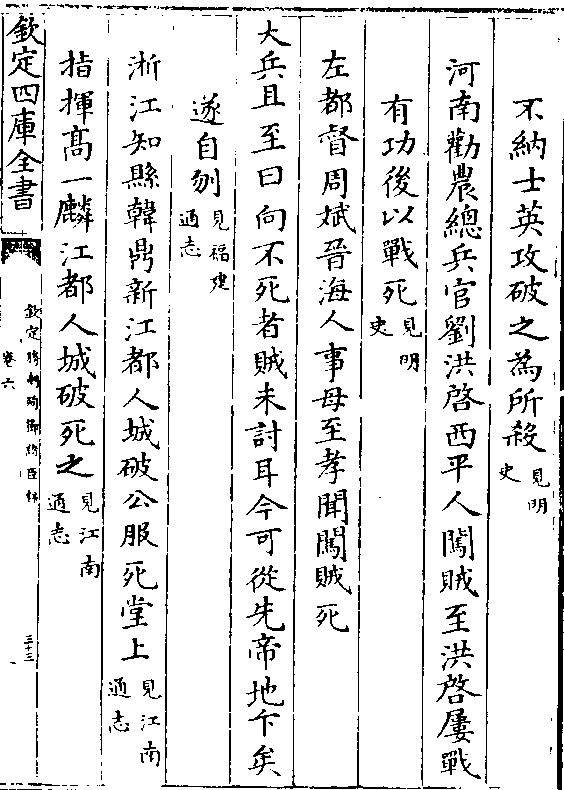 不納士英攻破之為所殺見明史
河南勸農總兵官劉洪啓西平人闖賊至洪啓屢戰
有功後以戰死見明史
左都督周斌晉海人事母至孝聞闖賊死
大兵且至曰向不死者賊未討耳今可從先帝地下矣
遂自刎見福建通志
浙江知縣韓鼎新江都人城破公服死堂上見江南通志
指揮高一麟江都人城破死之見江南通志
欽定四庫全書
欽定勝朝殉節諸臣錄
卷六
三十三